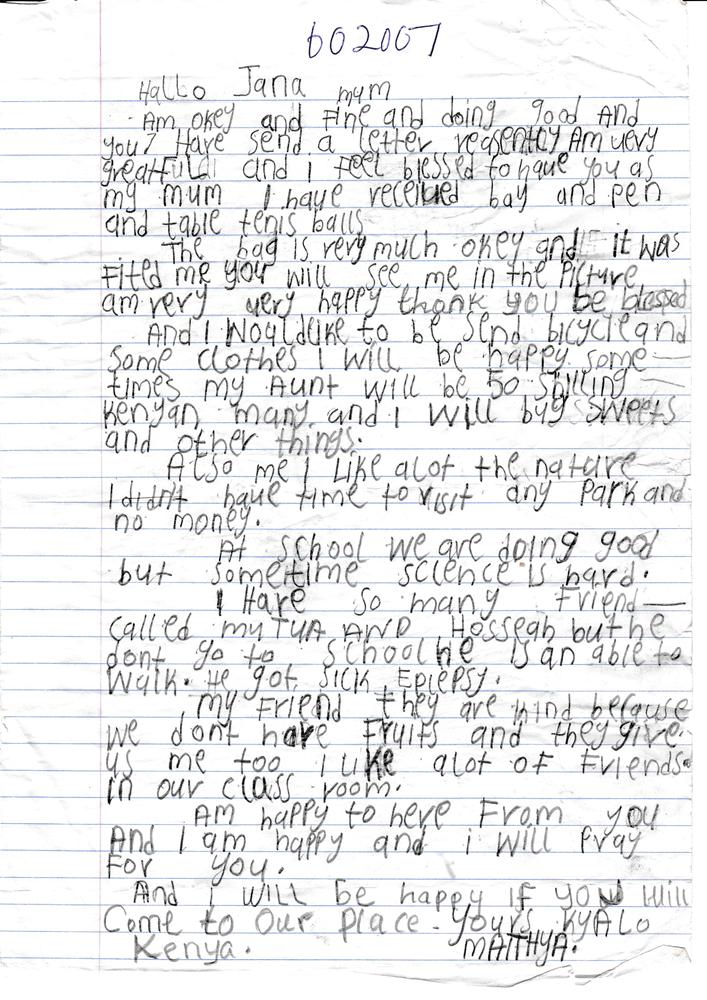 602007
Hallo Jana mum
Am okey and Fine and doing good And
you? Have send a letter reasently Am very
greatFull and i Feel blessed to have you as
my mum I have received bag and pen
and table tenis balls
The bag is very much okey and it was
Fited me you will see me in the Picture
am very very happy thank you be blessed
And I Would like to be send bicycle and
Some clothes I will be happy some
times my Aunt will be 50 shilling
Kenyan many and I will buy Sweets
and other things.
Also me I Like alot the nature
I didn't have time to visit any Park and
no money.
At school we are doing good
but sometime science is hard.
I Have so many Friend
Called muTUA AND Hosseah but he
dont go to school he is an able to
Walk. He got sick Epiepsy.
my Friend they are kind because
we dont have Fruits and they give
us me too I LIKE alot oF Friends.
in our class room.
Am happy to here From you
And I am happy and i will Pray
For you.
And i will be happy iF you will
Come to Our Place. Yours KYALO
Kenya. MAITHYA.